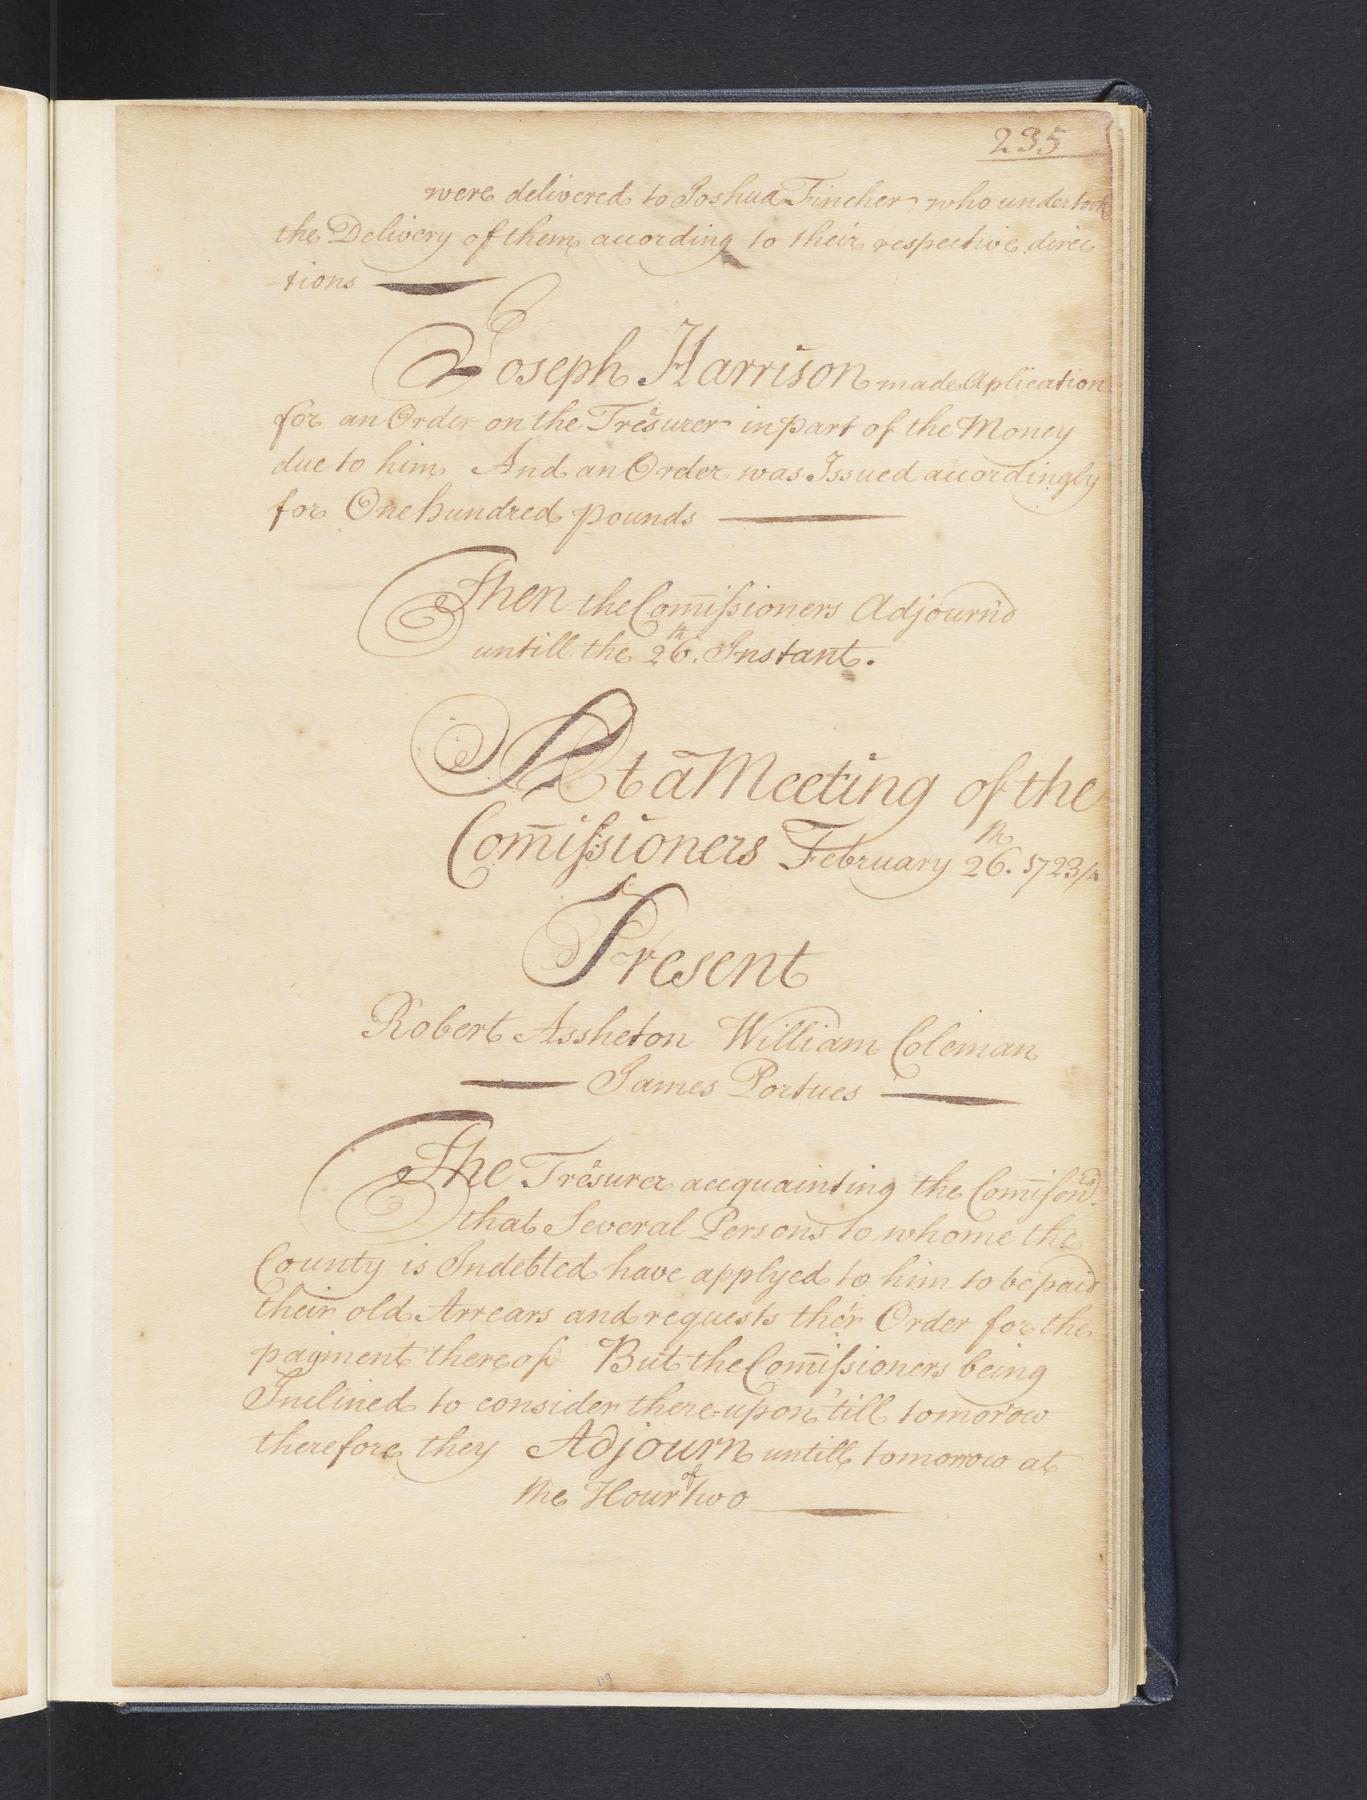 235
were delivered to Joshua Fincher who undertook
the Delivery of them according to their respective direc
-tions
Joseph Harrison made Aplication
for an Order on the Tresurer in part of the Money
due to him And an Order was Issued accordingly
for One hundred pounds
Then the Com̄issioners Adjourn'd
untill the 26th. Instant.
At a Meeting of the
Com̄issioners February 26th. 1723/4
Present
Robert Assheton William Coleman
James Portues
The Tresurer acquainting the Com̄ison.rs
that Several Persons to whome the
County is Indebted have applyed to him to be paid
their old Arrears and requests their Order for the
payment thereof But the Com̄issioners being
Inclined to consider there-upon 'till tomorow
therefore they Adjourn untill tomorrow at
the Hour of two
119